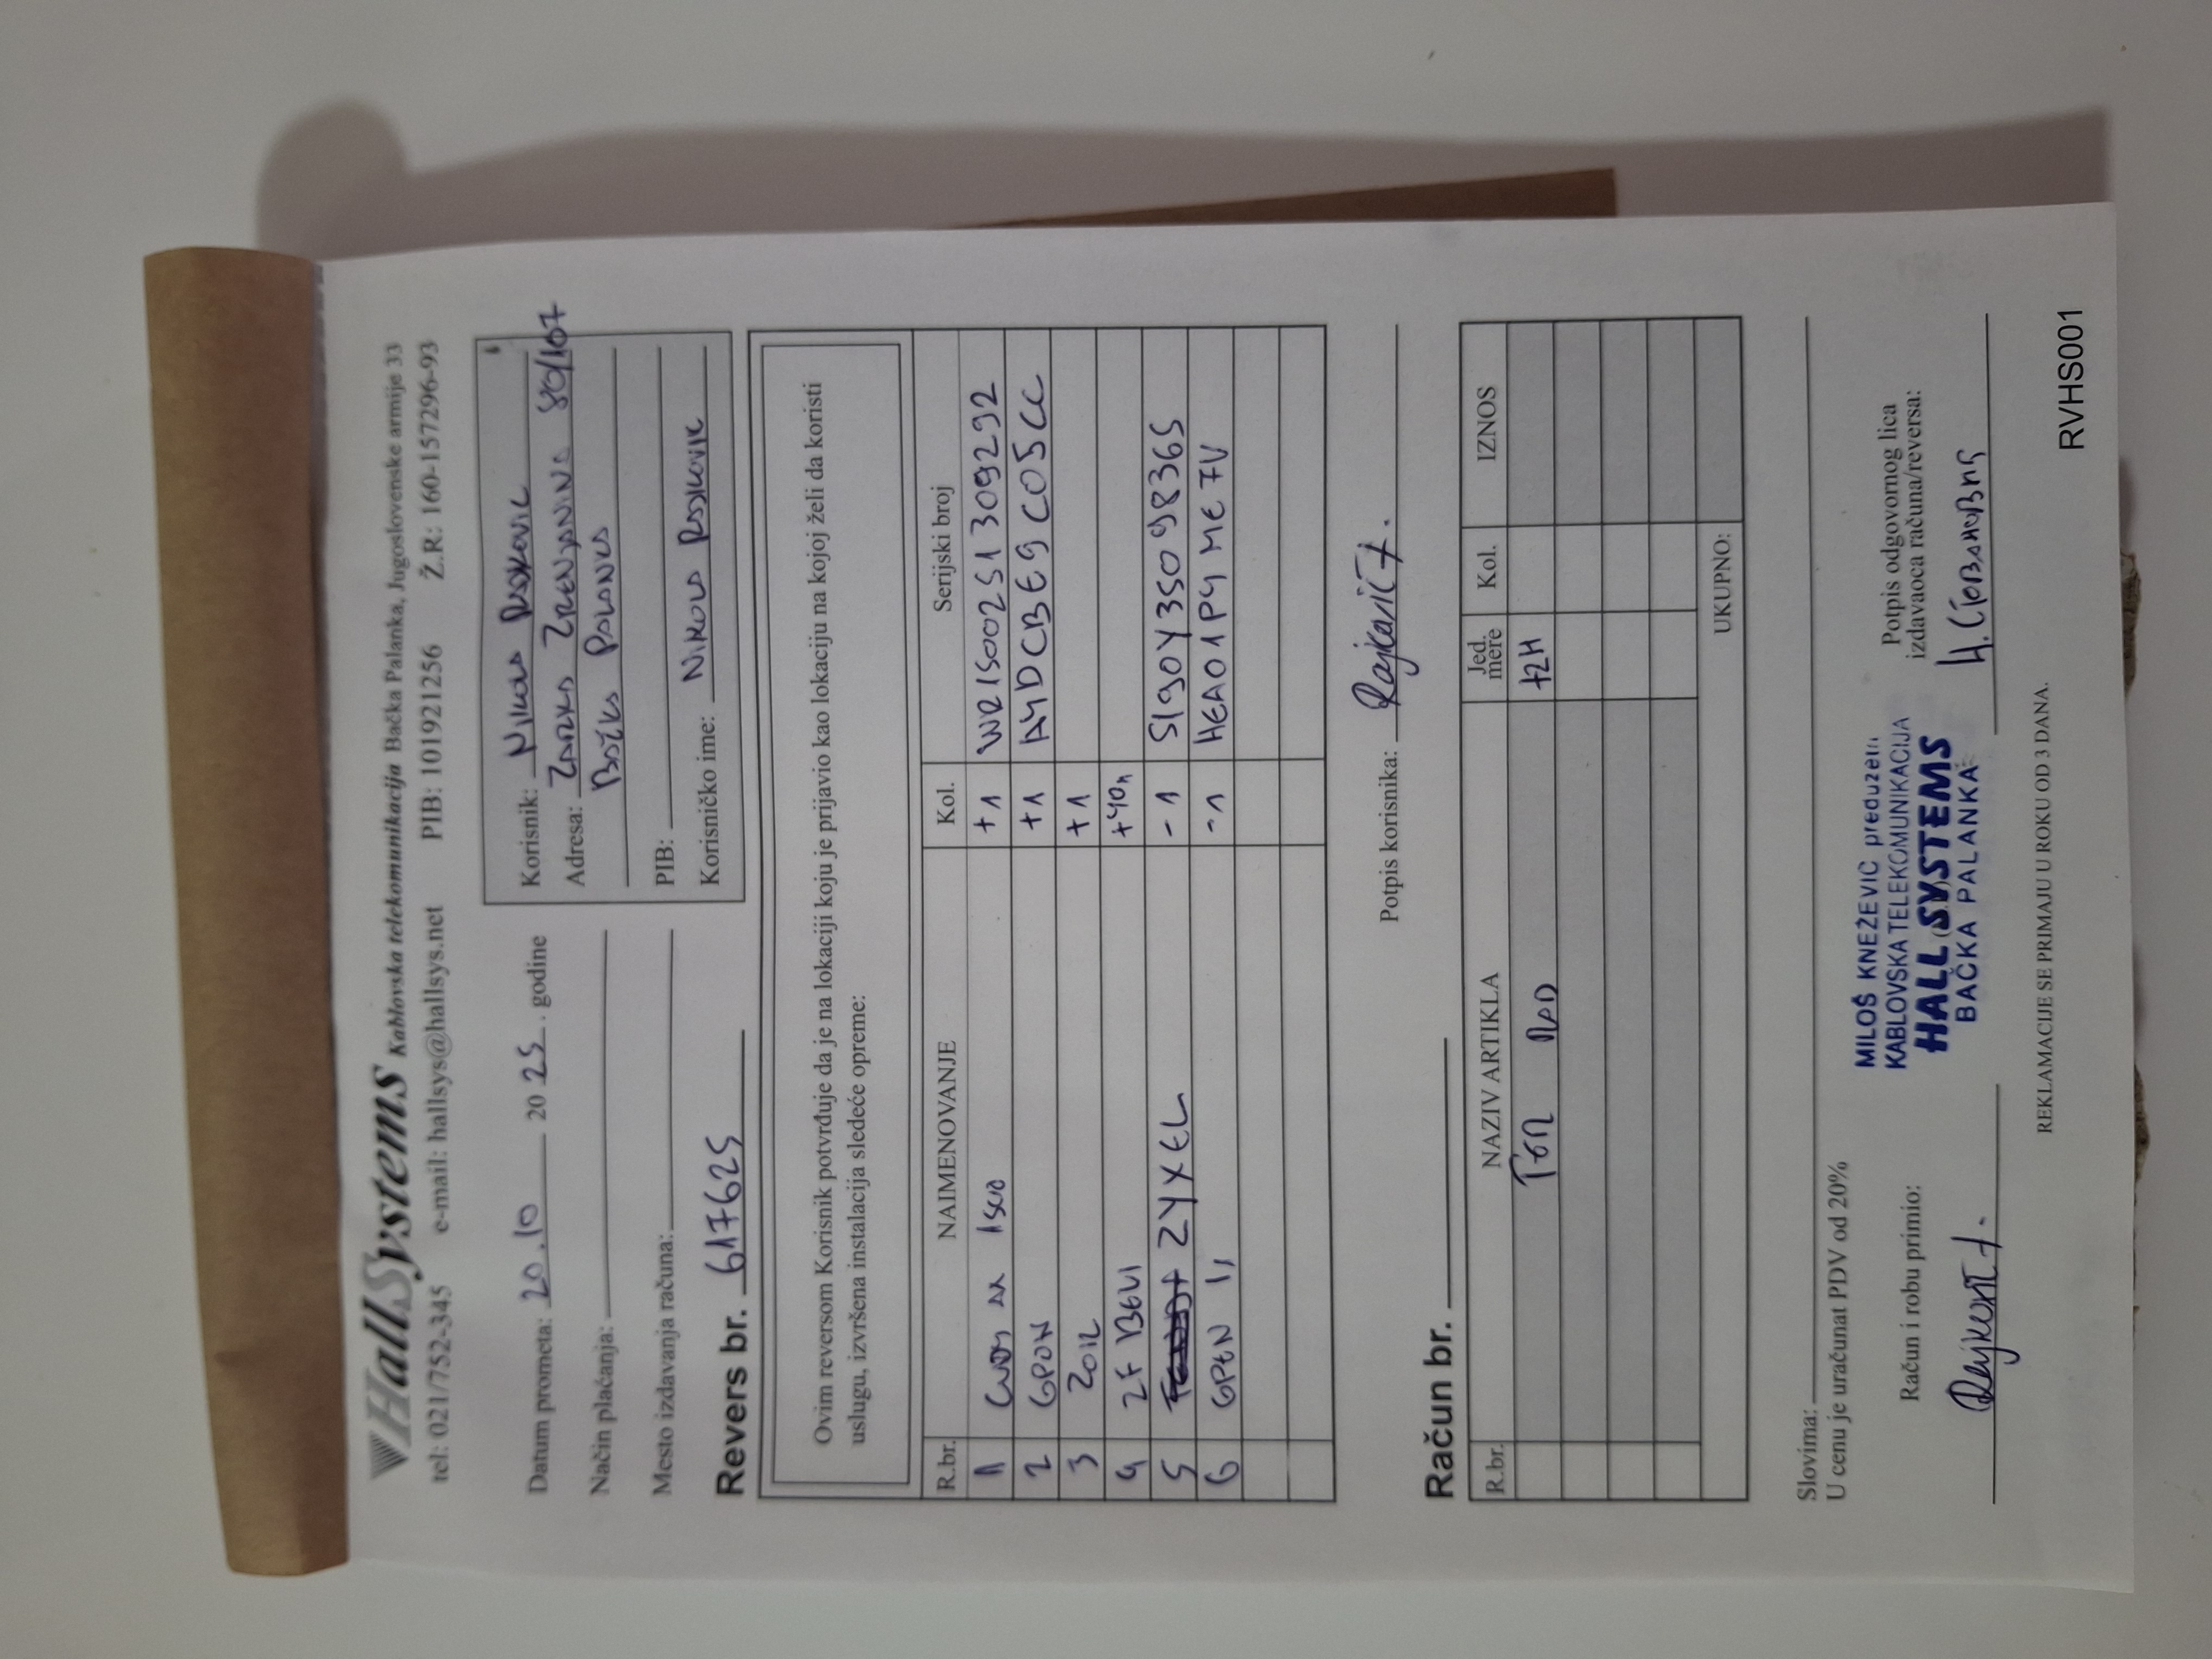 HallSystems Kablovska telekomunikacija Bačka Palanka, Jugoslovenske armije 33
tel: 021/752-345 e-mail: hallsys@hallsys.net PIB: 101921256 Ž.R: 160-157296-93
Datum prometa: 20.10 20 25 . godine
Način plaćanja:
Mesto izdavanja računa:
Revers br. 617625
Korisnik: Nikola
Adresa: 80/107
PIB:
Korisničko ime: Nikola
Ovim reversom Korisnik potvrđuje da je na lokaciji koju je prijavio kao lokaciju na kojoj želi da koristi
uslugu, izvršena instalacija sledeće opreme:
R.br. NAIMENOVANJE Kol. Serijski broj
1 +1 WR1500251309292
2 GPON +1 A4DCBE9C05CC
3 +1
4 2F BELI
5 ZYXEL -1 S190Y35098365
6 -1 HEA01P4ME7V
Potpis korisnika:
Račun br.
R.br. NAZIV ARTIKLA Jed. mere Kol. IZNOS
UKUPNO:
Slovima:
U cenu je uračunat PDV od 20%
Račun i robu primio:
MILOŠ KNEŽEVIĆ preduzetn
KABLOVSKA TELEKOMUNIKACIJA
HALL SYSTEMS
BAČKA PALANKA
Potpis odgovornog lica
izdavaoca računa/reversa:
REKLAMACIJE SE PRIMAJU U ROKU OD 3 DANA.
RVHS001